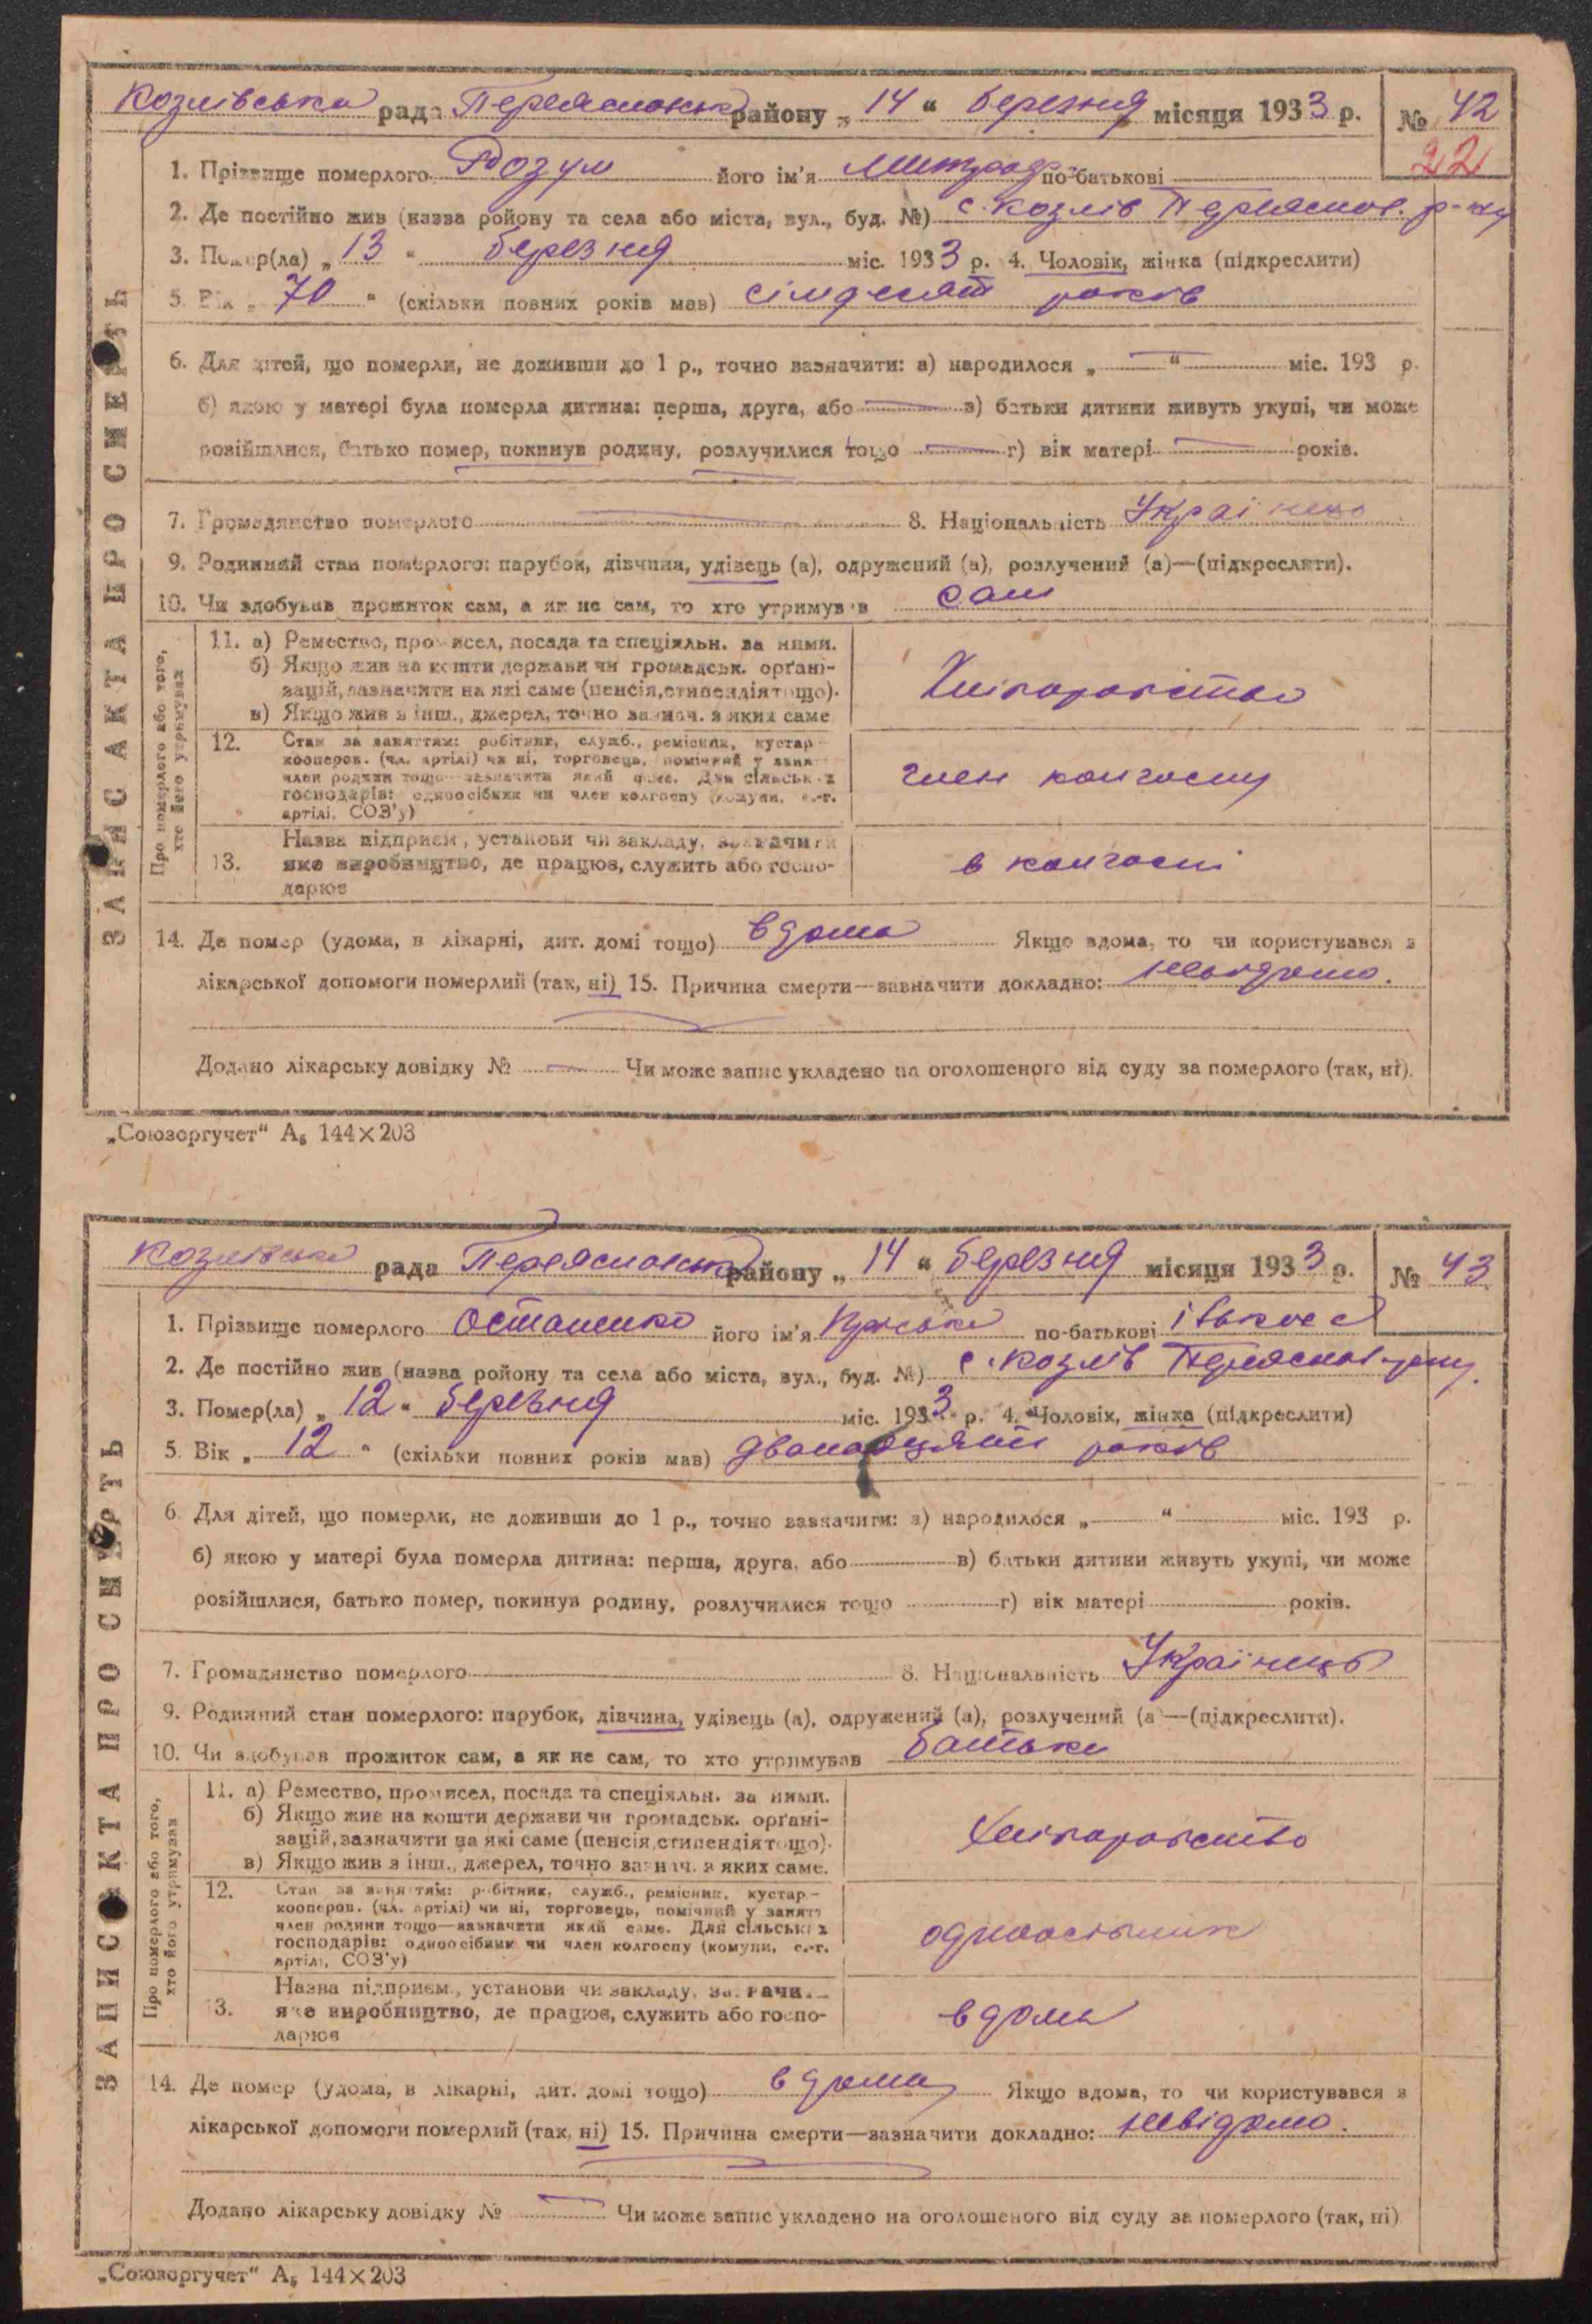 Козлівська рада Переяславськ району „14“ березня місяця 1933 р. № 42
22
ЗАПИС АКТА ПРО СМЕРТЬ
1. Прізвище померлого Розум його ім'я по-батькові —
2. Де постійно жив (назва ройону та села або міста, вул., буд. №) с. Козлів Переяслов. р-ну
3. Помер(ла) „13“ березня міс. 1933 р. 4. Чоловік, жінка (підкреслити)
5. Вік „70“ (скільки повних років мав) сімдесят років
6. Для дітей, що померли, не доживши до 1 р., точно зазначити: а) народилося „—“ міс. 193 р.
б) якою у матері була померла дитина: перша, друга, або — в) батьки дитини живуть укупі, чи може
розійшлися, батько помер, покинув родину, розлучилися тощо — г) вік матері — років.
7. Громадянство померлого — 8. Національність
9. Родинний стан померлого: парубок, дівчина, удівець (а), одружений (а), розлучений (а)—(підкреслити).
10. Чи здобував прожиток сам, а як не сам, то хто утримував сам
Про померлого або того, хто його утримував
11. а) Ремество, промисел, посада та спеціяльн. за ними.
б) Якщо жив на кошти держави чи громадськ. орґані-
зацій, зазначити на які саме (пенсія, стипендія тощо).
в) Якщо жив з інш., джерел, точно зазнач. з яких саме
Хліборобство
12. Стан за заняттям: робітник, служб., ремісник, кустар-
кооперов. (чл. артілі) чи ні, торговець, помічний у занят.
член родини тощо—зазначити який саме. Для сільських
господарів: одноосібник чи член колгоспу (комуни, с.-г.
артілі, СОЗ'у)
член колгоспу
13. Назва підприєм., установи чи закладу, зазначити
яке виробництво, де працює, служить або госпо-
дарює
в колгоспі
14. Де помер (удома, в лікарні, дит. домі тощо) вдома Якщо вдома, то чи користувався з
лікарської допомоги померлий (так, ні) 15. Причина смерти—зазначити докладно: невідомо.
Додано лікарську довідку № — Чи може запис укладено на оголошеного від суду за померлого (так, ні).
„Союзоргучет“ А₅ 144×203
Козлівська рада Переяславськ району „14“ березня місяця 1933 р. № 43
ЗАПИС АКТА ПРО СМЕРТЬ
1. Прізвище померлого Остапенко його ім'я по-батькові
2. Де постійно жив (назва ройону та села або міста, вул., буд. №) с. Козлів
3. Помер(ла) „12“ березня міс. 1933 р. 4. Чоловік, жінка (підкреслити)
5. Вік „12“ (скільки повних років мав) дванадцять років
6. Для дітей, що померли, не доживши до 1 р., точно зазначити: а) народилося „ “ міс. 193 р.
б) якою у матері була померла дитина: перша, друга, або в) батьки дитини живуть укупі, чи може
розійшлися, батько помер, покинув родину, розлучилися тощо г) вік матері років.
7. Громадянство померлого 8. Національність Українець
9. Родинний стан померлого: парубок, дівчина, удівець (а), одружений (а), розлучений (а)—(підкреслити).
10. Чи здобував прожиток сам, а як не сам, то хто утримував батьки
Про померлого або того, хто його утримував
11. а) Ремество, промисел, посада та спеціяльн. за ними.
б) Якщо жив на кошти держави чи громадськ. орґані-
зацій, зазначити на які саме (пенсія, стипендія тощо).
в) Якщо жив з інш., джерел, точно зазнач. з яких саме.
Хліборобство
12. Стан за заняттям: робітник, служб., ремісник, кустар-
кооперов. (чл. артілі) чи ні, торговець, помічний у занятт
член родини тощо—зазначити який саме. Для сільських
господарів: одноосібник чи член колгоспу (комуни, с.-г.
артілі, СОЗ'у)
одноосібник
13. Назва підприєм., установи чи закладу, зазначи.
яке виробництво, де працює, служить або госпо-
дарює
вдома
14. Де помер (удома, в лікарні, дит. домі тощо) вдома Якщо вдома, то чи користувався з
лікарської допомоги померлий (так, ні) 15. Причина смерти—зазначити докладно: невідомо.
Додано лікарську довідку № — Чи може запис укладено на оголошеного від суду за померлого (так, ні)
„Союзоргучет“ А₅ 144×203